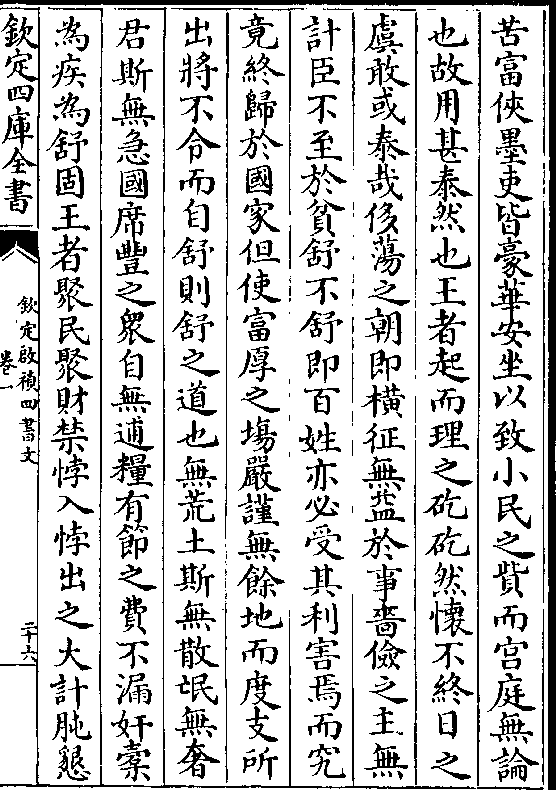 苦富俠墨吏皆豪華安坐以致小民之貲而宫庭無論
也故用甚泰然也王者起而理之矻矻然懷不終日之
虞敢或泰哉侈蕩之朝即橫征無葢於事嗇儉之主無
計臣不至於貧舒不舒即百姓亦必受其利害焉而究
竟終歸於國家但使富厚之塲嚴謹無餘地而度支所
出將不令而自舒則舒之道也無荒土斯無散氓無奢
君斯無急國席豐之衆自無逋糧有節之費不漏奸橐
為疾為舒固王者聚民聚財禁悖入悖出之大計肫懇
欽定四庫全書
欽定啟禎四書文
卷一
二十六